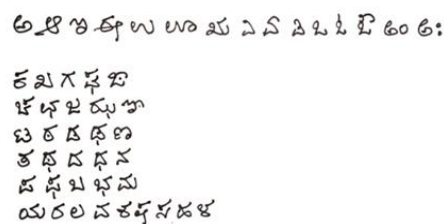 ಅ ಆ ಇ ಈ ಉ ಊ ಋ ಎ ಏ ಐ ಒ ಓ ಔ ಅಂ ಅಃ
ಕ ಖ ಗ ಘ ಙ
ಚ ಛ ಜ ಝ ಞ
ಟ ಠ ಡ ಢ ಣ
ತ ಥ ದ ಧ ನ
ಪ ಫ ಬ ಭ ಮ
ಯ ರ ಲ ವ ಶ ಷ ಸ ಹ ಳ